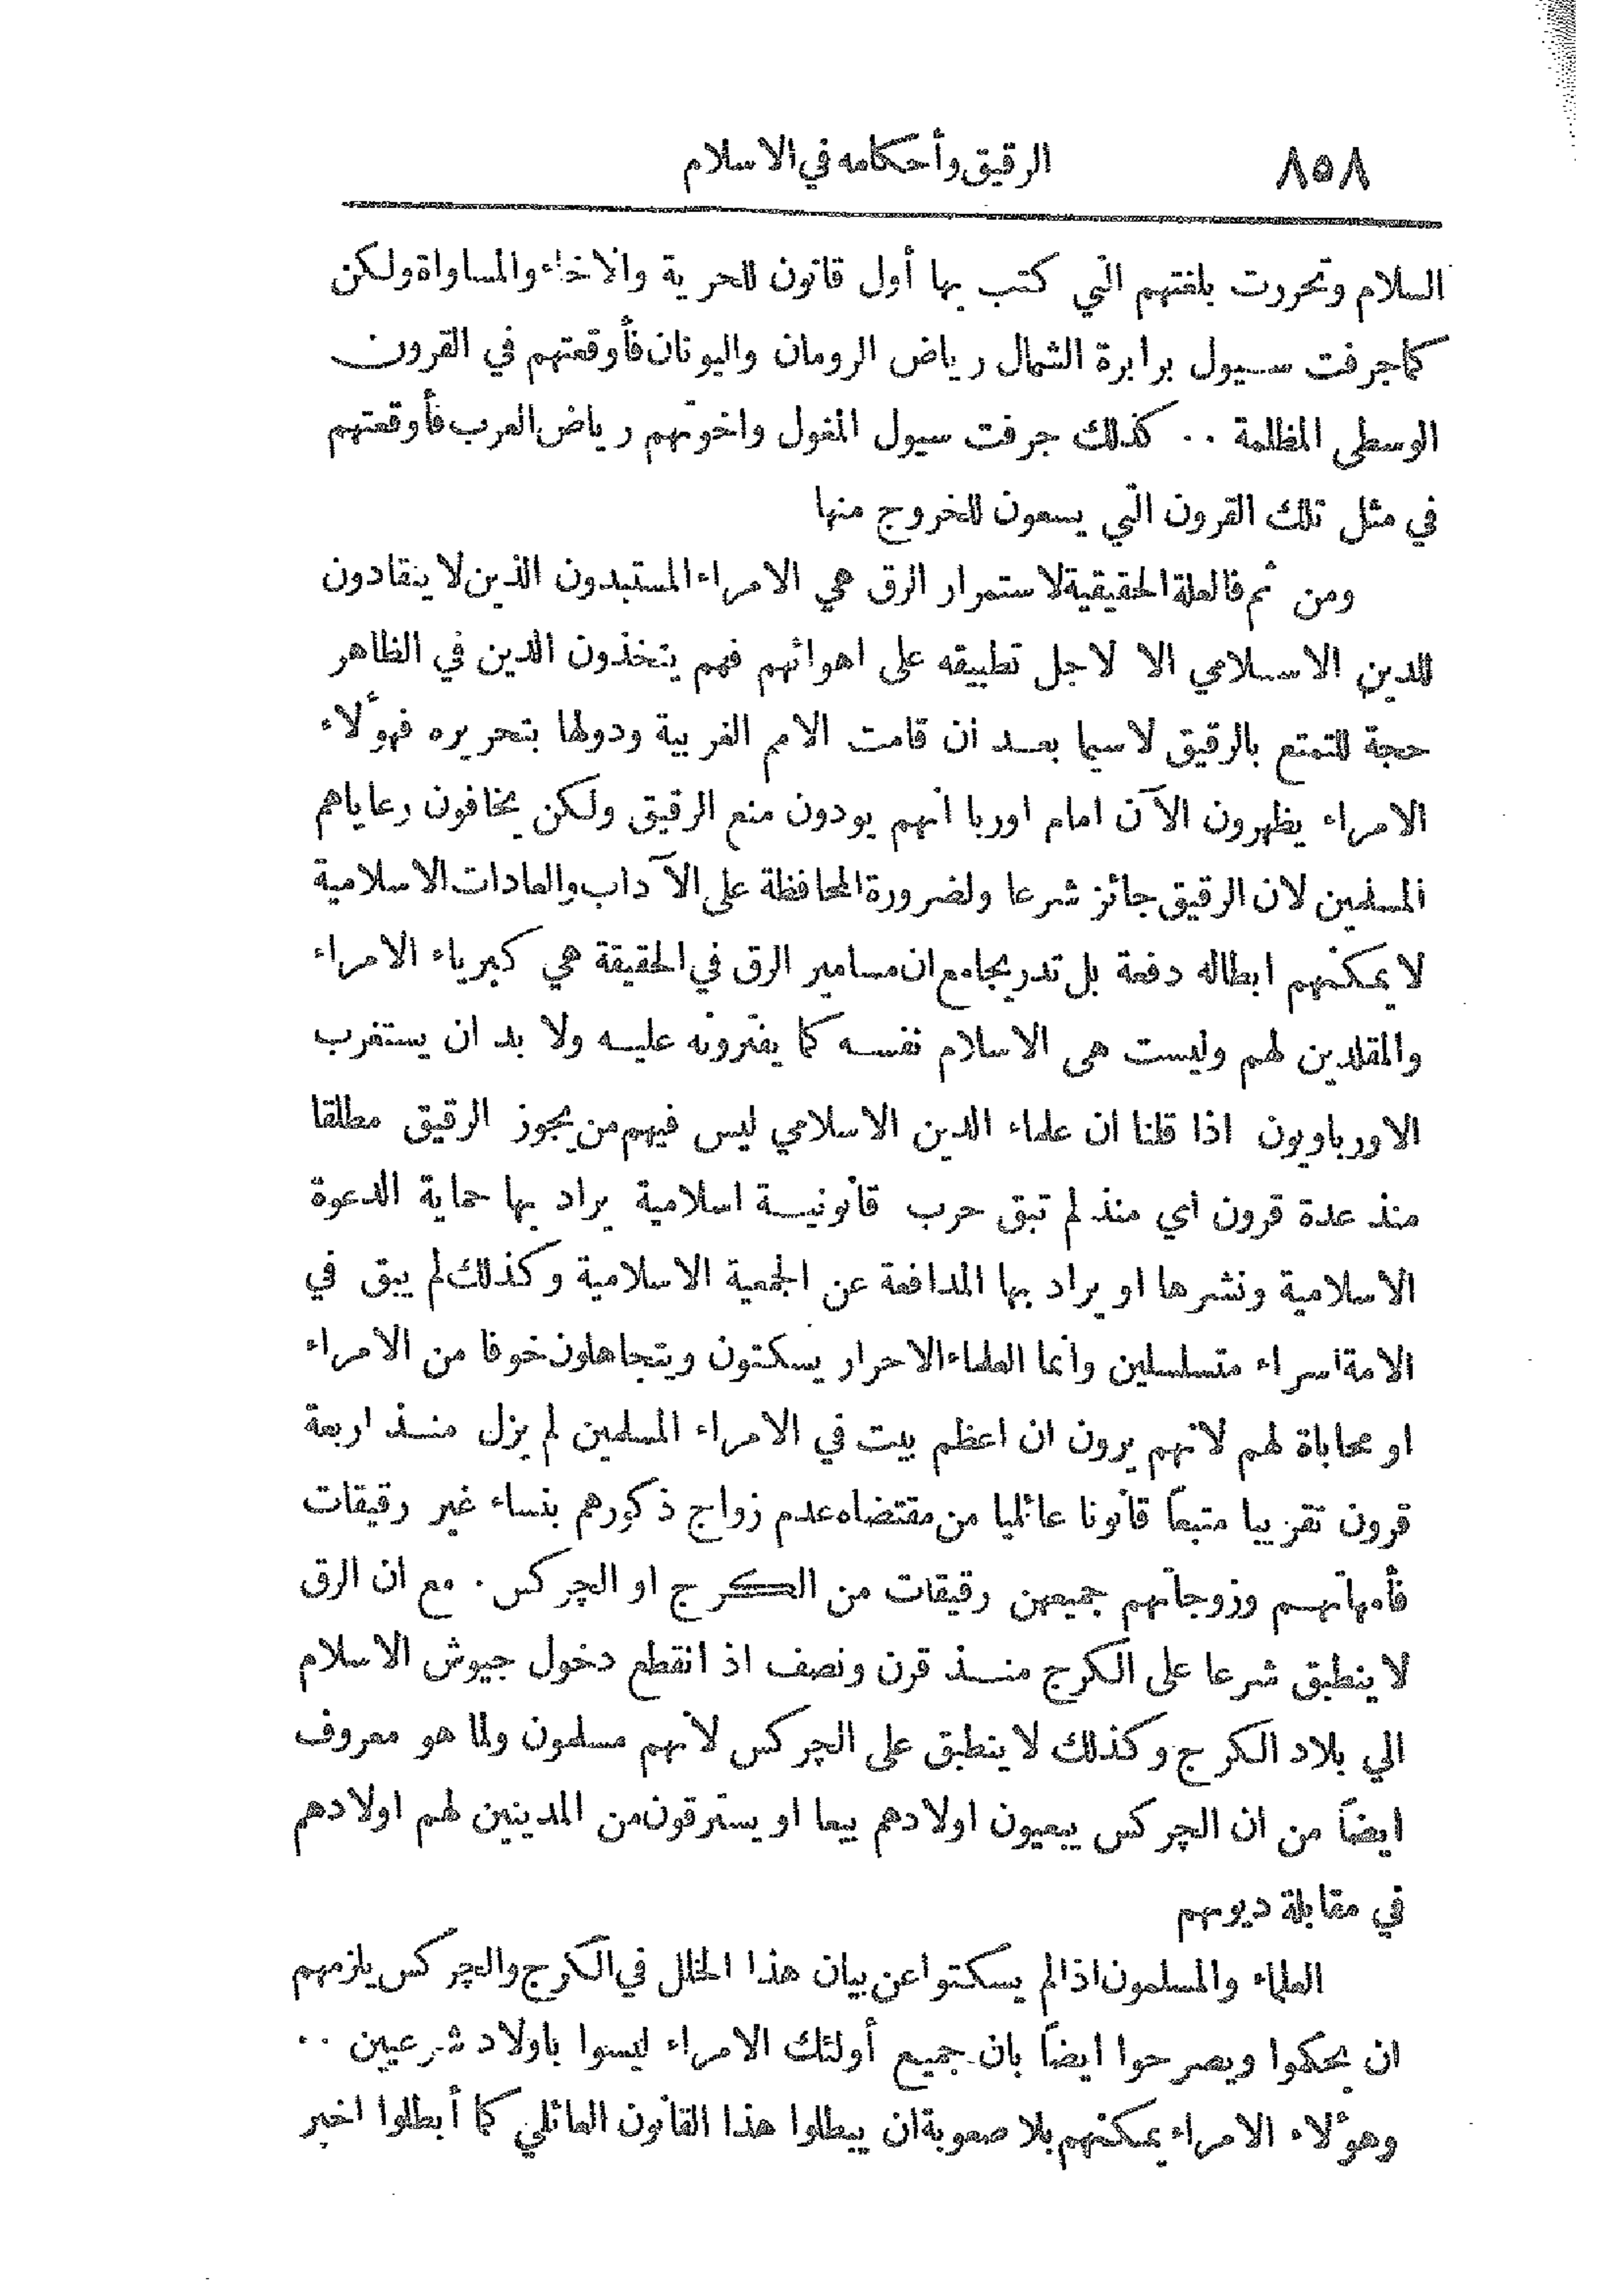 ٨٥٨
الرقيق وأحكامه في الاسلام
السلام وتحررت بلغتهم التي كتب بها أول قانون للحرية والاخاء والمساواة ولكن
كما جرفت سيول برابرة الشمال رياض الرومان واليونان فأوقعتهم في القرون
الوسطى المظلمة ٠٠ كذلك جرفت سيول المغول واخوتهم رياض العرب فأوقعتهم
في مثل تلك القرون التي يسعون للخروج منها
ومن ثم فالعلة الحقيقية لاستمرار الرق هي الامراء المستبدون الذين لا ينقادون
للدين الاسلامي الا لاجل تطبيقه على اهوائهم فهم يتخذون الدين في الظاهر
حجة للتمتع بالرقيق لاسيما بعد ان قامت الامم الغربية ودولها بتحريره فهؤلاء
الامراء يظهرون الآن امام اوربا انهم يودون منع الرقيق ولكن يخافون رعاياهم
المسلمين لان الرقيق جائز شرعا ولضرورة المحافظة على الآداب والعادات الاسلامية
لا يمكنهم ابطاله دفعة بل تدريجا مع ان مسامير الرق في الحقيقة هي كبرياء الامراء
والمقلدين لهم وليست هى الاسلام نفسه كما يفترونه عليه ولا بد ان يستغرب
الاورباويون اذا قلنا ان علماء الدين الاسلامي ليس فيهم من يجوز الرقيق مطلقا
منذ عدة قرون اي منذ لم تبق حرب قانونية اسلامية يراد بها حماية الدعوة
الاسلامية ونشرها او يراد بها المدافعة عن الجمعية الاسلامية وكذلك لم يبق في
الامة اسراء متسلسلين وانما العلماء الاحرار يسكتون ويتجاهلون خوفا من الامراء
او محاباة لهم لانهم يرون ان اعظم بيت في الامراء المسلمين لم يزل منذ اربعة
قرون تقريبا متبعاً قانونا عائليا من مقتضاه عدم زواج ذكورهم بنساء غير رقيقات
فأمهاتهم وزوجاتهم جميعهن رقيقات من الكرج او الچركس ٠ مع ان الرق
لا ينطبق شرعا على الكرج منذ قرن ونصف اذ انقطع دخول جيوش الاسلام
الي بلاد الكرج وكذلك لا ينطبق على الچركس لانهم مسلمون ولما هو معروف
ايضاً من ان الچركس يبعيون اولادهم بيعا او يسترقون من المدينين لهم اولادهم
في مقابلة ديونهم
العلماء والمسلمون اذا لم يسكتوا عن بيان هذا الخلل في الكرج والچركس يلزمهم
ان يحكموا ويصرحوا ايضاً بان جميع أولئك الامراء ليسوا باولاد شرعيين ٠٠
وهؤلاء الامراء يمكنهم بلا صعوبة ان يبطلوا هذا القانون العائلي كما أبطلوا اخير